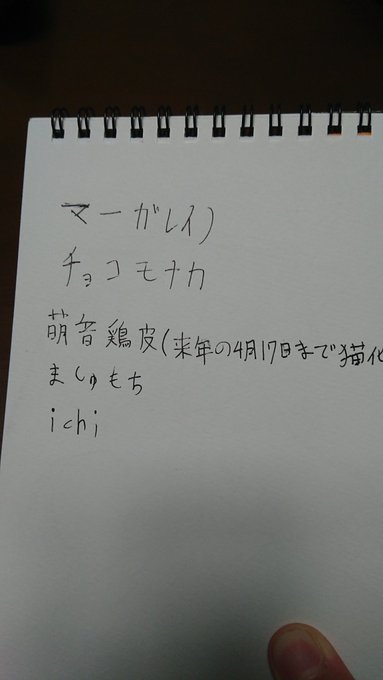 マーガレイノ
チョコモナカ
萌音鶏皮(来年の4月17日まで猫化
ましゅもち
ichi